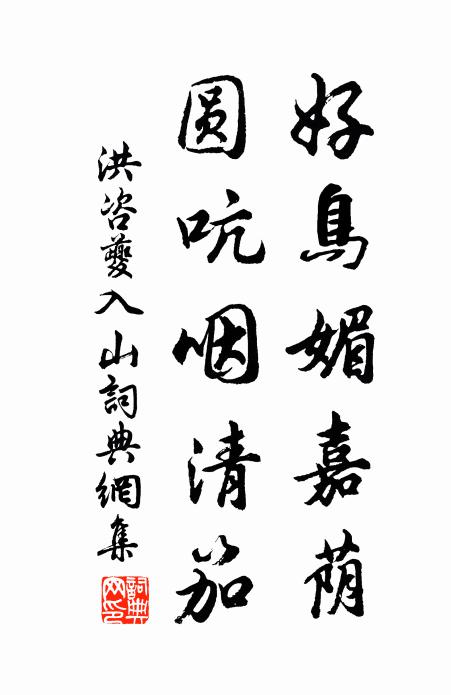 好鳥媚嘉荫
圆吭咽清笳
洪咨夔入山詞典網集
詞典网印